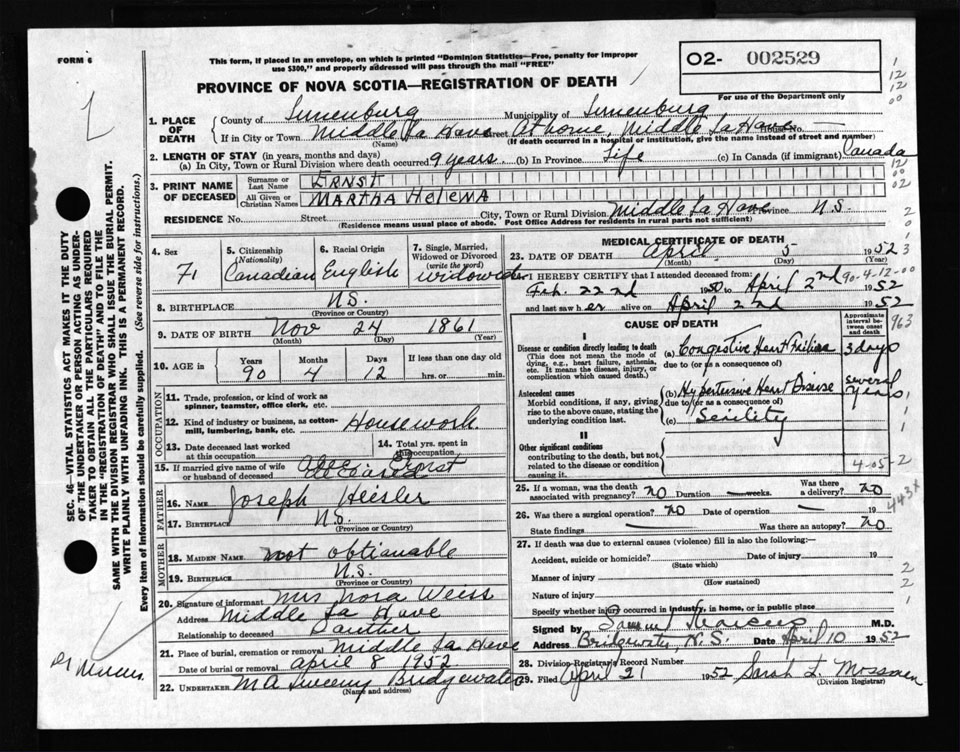 FORM 6
This form, if placed in an envelope, on which is printed "Dominion Statistics—Free, penalty for improper
use $300," and properly addressed will pass through the mail "FREE"
O2- 002529
For use of the Department only
PROVINCE OF NOVA SCOTIA—REGISTRATION OF DEATH
1. PLACE OF DEATH
County of Lunenburg Municipality of Lunenburg
If in City or Town Middle La Have Street At home, Middle La Have House No. —
(Name) (If death occurred in a hospital or institution, give the name instead of street and number)
2. LENGTH OF STAY (in years, months and days)
(a) In City, Town or Rural Division where death occurred 9 years (b) In Province Life (c) In Canada (if immigrant) Canada
3. PRINT NAME OF DECEASED
Surname or Last Name ERNST
All Given or Christian Names MARTHA HELENA
RESIDENCE No. Street City, Town or Rural Division Middle La Have Province N.S.
(Residence means usual place of abode. Post Office Address for residents in rural parts not sufficient)
4. Sex
F
5. Citizenship (Nationality)
Canadian
6. Racial Origin
English
7. Single, Married, Widowed or Divorced (write the word)
widowed
8. BIRTHPLACE N.S.
(Province or Country)
9. DATE OF BIRTH Nov 24 1861
(Month) (Day) (Year)
10. AGE in
Years Months Days If less than one day old
90 4 12 hrs. or min.
OCCUPATION
11. Trade, profession, or kind of work as
spinner, teamster, office clerk, etc.
12. Kind of industry or business, as cotton-
mill, lumbering, bank, etc. Housework.
13. Date deceased last worked
at this occupation
14. Total yrs. spent in
this occupation
15. If married give name of wife
or husband of deceased Ernst
deceased
FATHER
16. NAME Joseph Heisler
17. BIRTHPLACE N.S.
(Province or Country)
MOTHER
18. MAIDEN NAME not obtianable
19. BIRTHPLACE N.S.
(Province or Country)
20. Signature of informant Mrs Nora Weiss
Address Middle La Have
Relationship to deceased Dauther
21. Place of burial, cremation or removal Middle La Have
Date of burial or removal April 8 1952
22. UNDERTAKER M A Sweeny Bridgewater
(Name and address)
MEDICAL CERTIFICATE OF DEATH
23. DATE OF DEATH April 5 1952
(Month) (Day) (Year)
I HEREBY CERTIFY that I attended deceased from
Feb. 22nd 1950 to April 2nd 1952
and last saw her alive on April 2nd 1952
90-4-12-00
CAUSE OF DEATH
Approximate interval between onset and death
963
I
Disease or condition directly leading to death
(This does not mean the mode of
dying, e.g., heart failure, asthenia,
etc. It means the disease, injury, or
complication which caused death.)
(a) Congestive Heart Failure 3 days
due to (or as a consequence of)
Antecedent causes
Morbid conditions, if any, giving
rise to the above cause, stating the
underlying condition last.
(b) Hypertensive Heart Disease several years
due to (or as a consequence of)
(c) Senility
II
Other significant conditions
contributing to the death, but not
related to the disease or condition
causing it.
4-05-2
443x
25. If a woman, was the death
associated with pregnancy? no Duration weeks. Was there a delivery? no
26. Was there a surgical operation? no Date of operation — 19
State findings — Was there an autopsy? no
27. If death was due to external causes (violence) fill in also the following:
Accident, suicide or homicide? Date of injury 19
(State which)
Manner of injury
(How sustained)
Nature of injury
Specify whether injury occurred in industry, in home, or in public place
Signed by M.D.
Address Bridgewater, N.S. Date April 10 1952
28. Division Registrar's Record Number
29. Filed April 21 1952 Sarah L. Mossman
(Division Registrar)
SEC. 46—VITAL STATISTICS ACT MAKES IT THE DUTY
OF THE UNDERTAKER OR PERSON ACTING AS UNDER-
TAKER TO OBTAIN ALL THE PARTICULARS REQUIRED
IN THE "REGISTRATION OF DEATH" AND TO FILE THE
SAME WITH THE DIVISION REGISTRAR WHO SHALL ISSUE THE BURIAL PERMIT.
WRITE PLAINLY WITH UNFADING INK. THIS IS A PERMANENT RECORD.
Every item of Information should be carefully supplied. (See reverse side for instructions.)